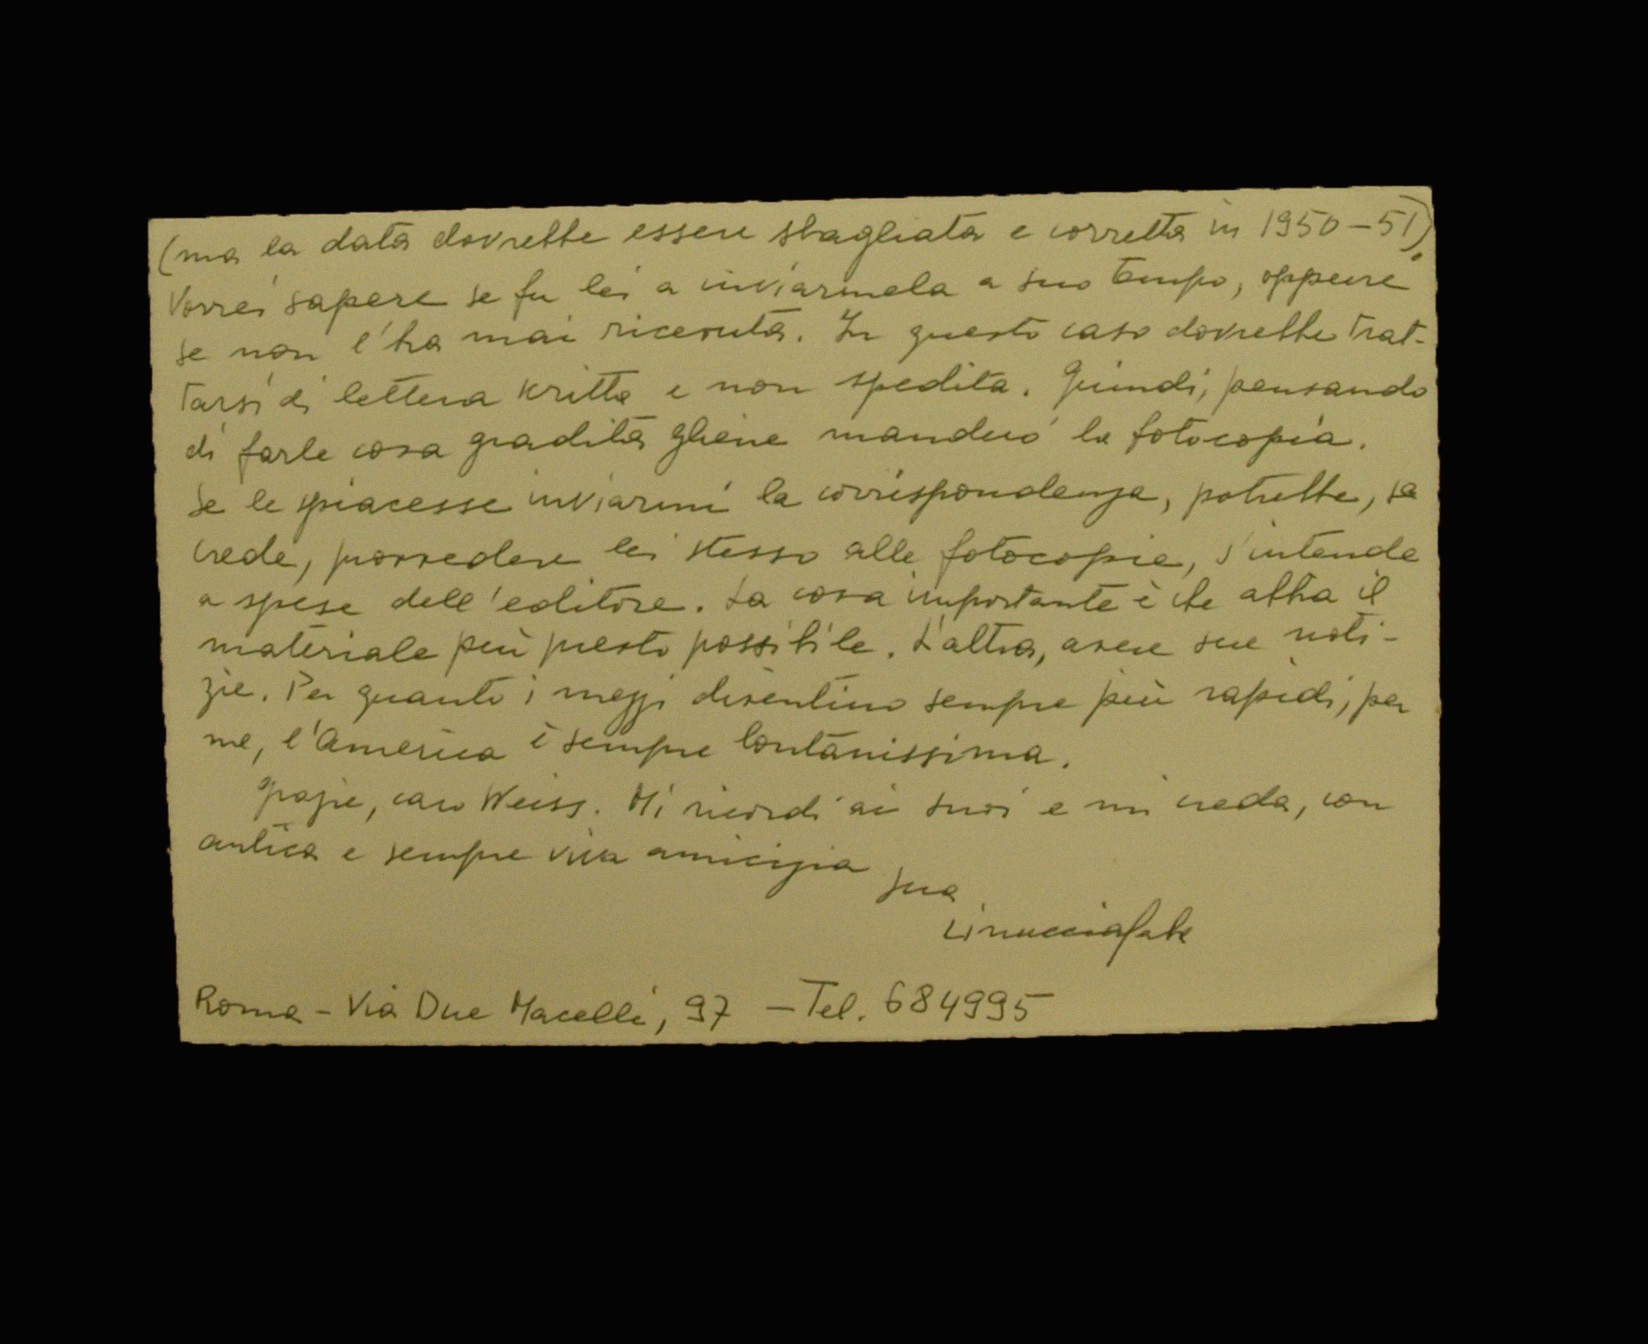 (ma la data dovrebbe essere sbagliata e corretta in 1950-51).
Vorrei sapere se fu lei a inviarmela a suo tempo, oppure
se non l'ha mai ricevuta. In questo caso dovrebbe trat-
tarsi di lettera scritta e non spedita. Quindi, pensando
di farle cosa gradita gliene manderò la fotocopia.
Se le spiacesse inviarmi la corrispondenza, potrebbe, se
crede, provvedere lei stesso alle fotocopie, s'intende
a spese dell'editore. La cosa importante è che abbia il
materiale più presto possibile. L'altra, avere sue noti-
zie. Per quanto i mezzi diventino sempre più rapidi, per
me, l'America è sempre lontanissima.
Grazie, caro Weiss. Mi ricordi ai suoi e mi creda, con
antica e sempre viva amicizia
sua
Linuccia Saba
Roma - Via Due Macelli, 97 - Tel. 684995